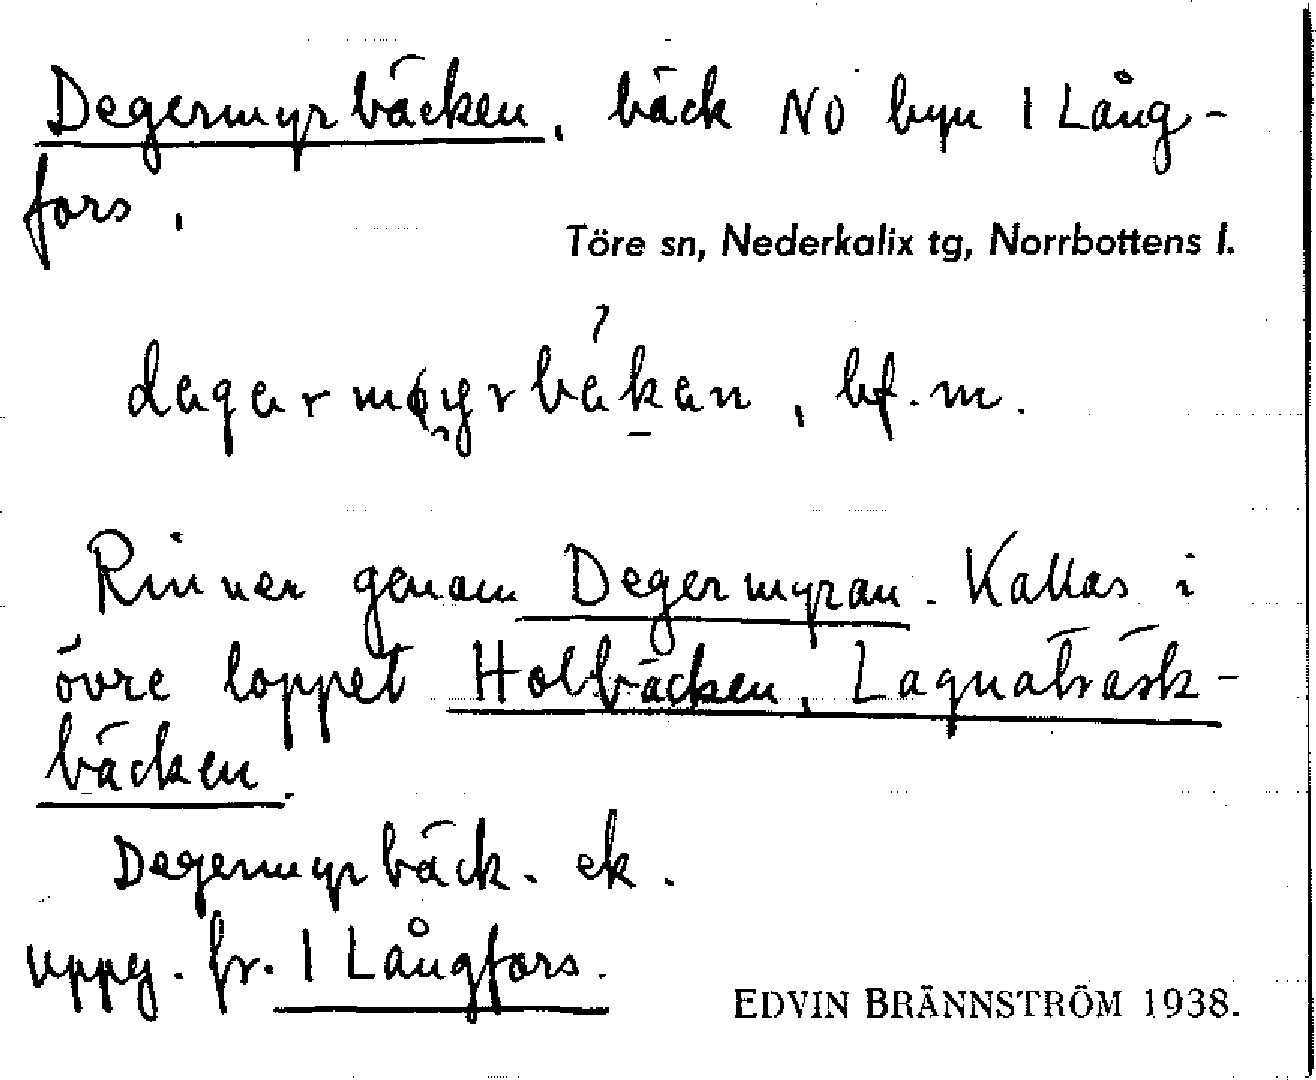 Degermyrbäcken, bäck NO byn 1 Lång-
fors,
Töre sn, Nederkalix tg, Norrbottens l.
bf. m.
Rinner genom Degermyran. Kallas i
övre loppet Holbäcken, Lagnaträsk-
bäcken.
Degermyrbäck. ek.
uppg. fr. 1 Långfors.
EDVIN BRÄNNSTRÖM 1938.